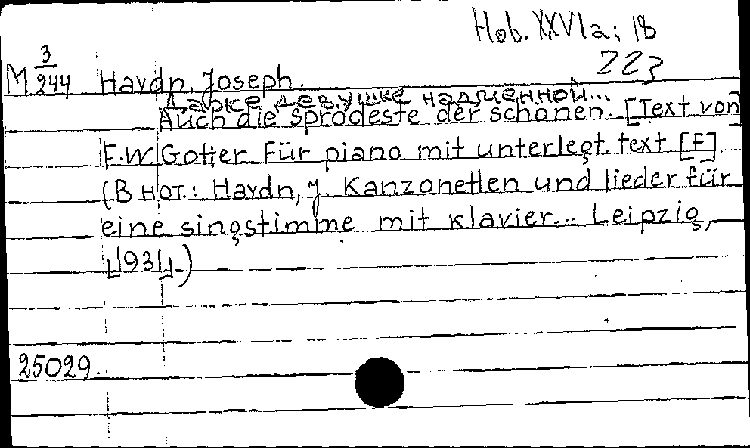 Hob. XXVIa; 18
223
M 3/244 Haydn, Joseph.
Даже девушке надменной...
Auch die sprodeste der schonen. [Text von
F.W Gotter Für piano mit unterlegt. text [F].
(В нот.: Haydn, J. Kanzonetten und lieder für
eine singstimme mit klavier... Leipzig,
1931.)
25029